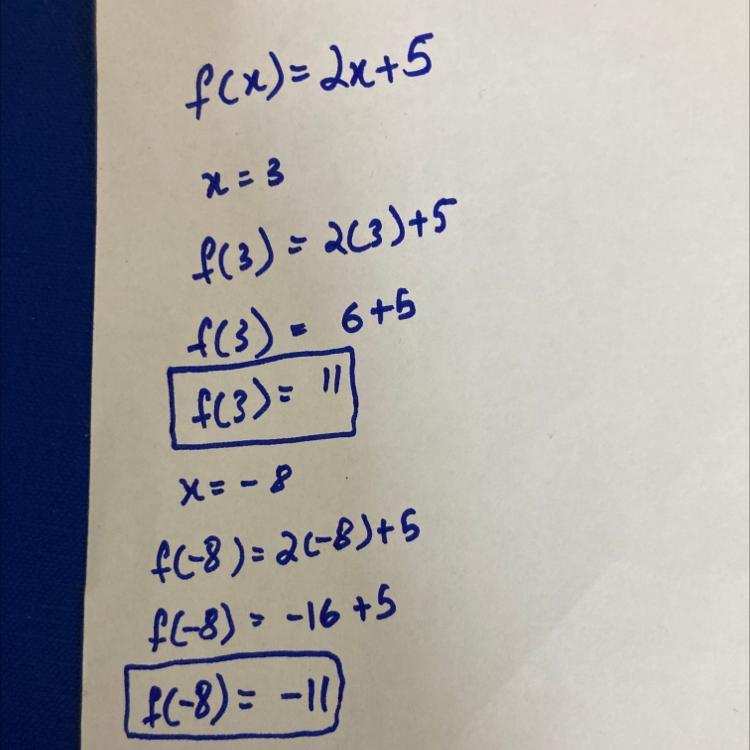 f(x)=2x+5
x=3
f(3)=2(3)+5
f(3)= 6+5
f(3)= 11
x=-8
f(-8)=2(-8)+5
f(-8)= -16+5
f(-8)= -11